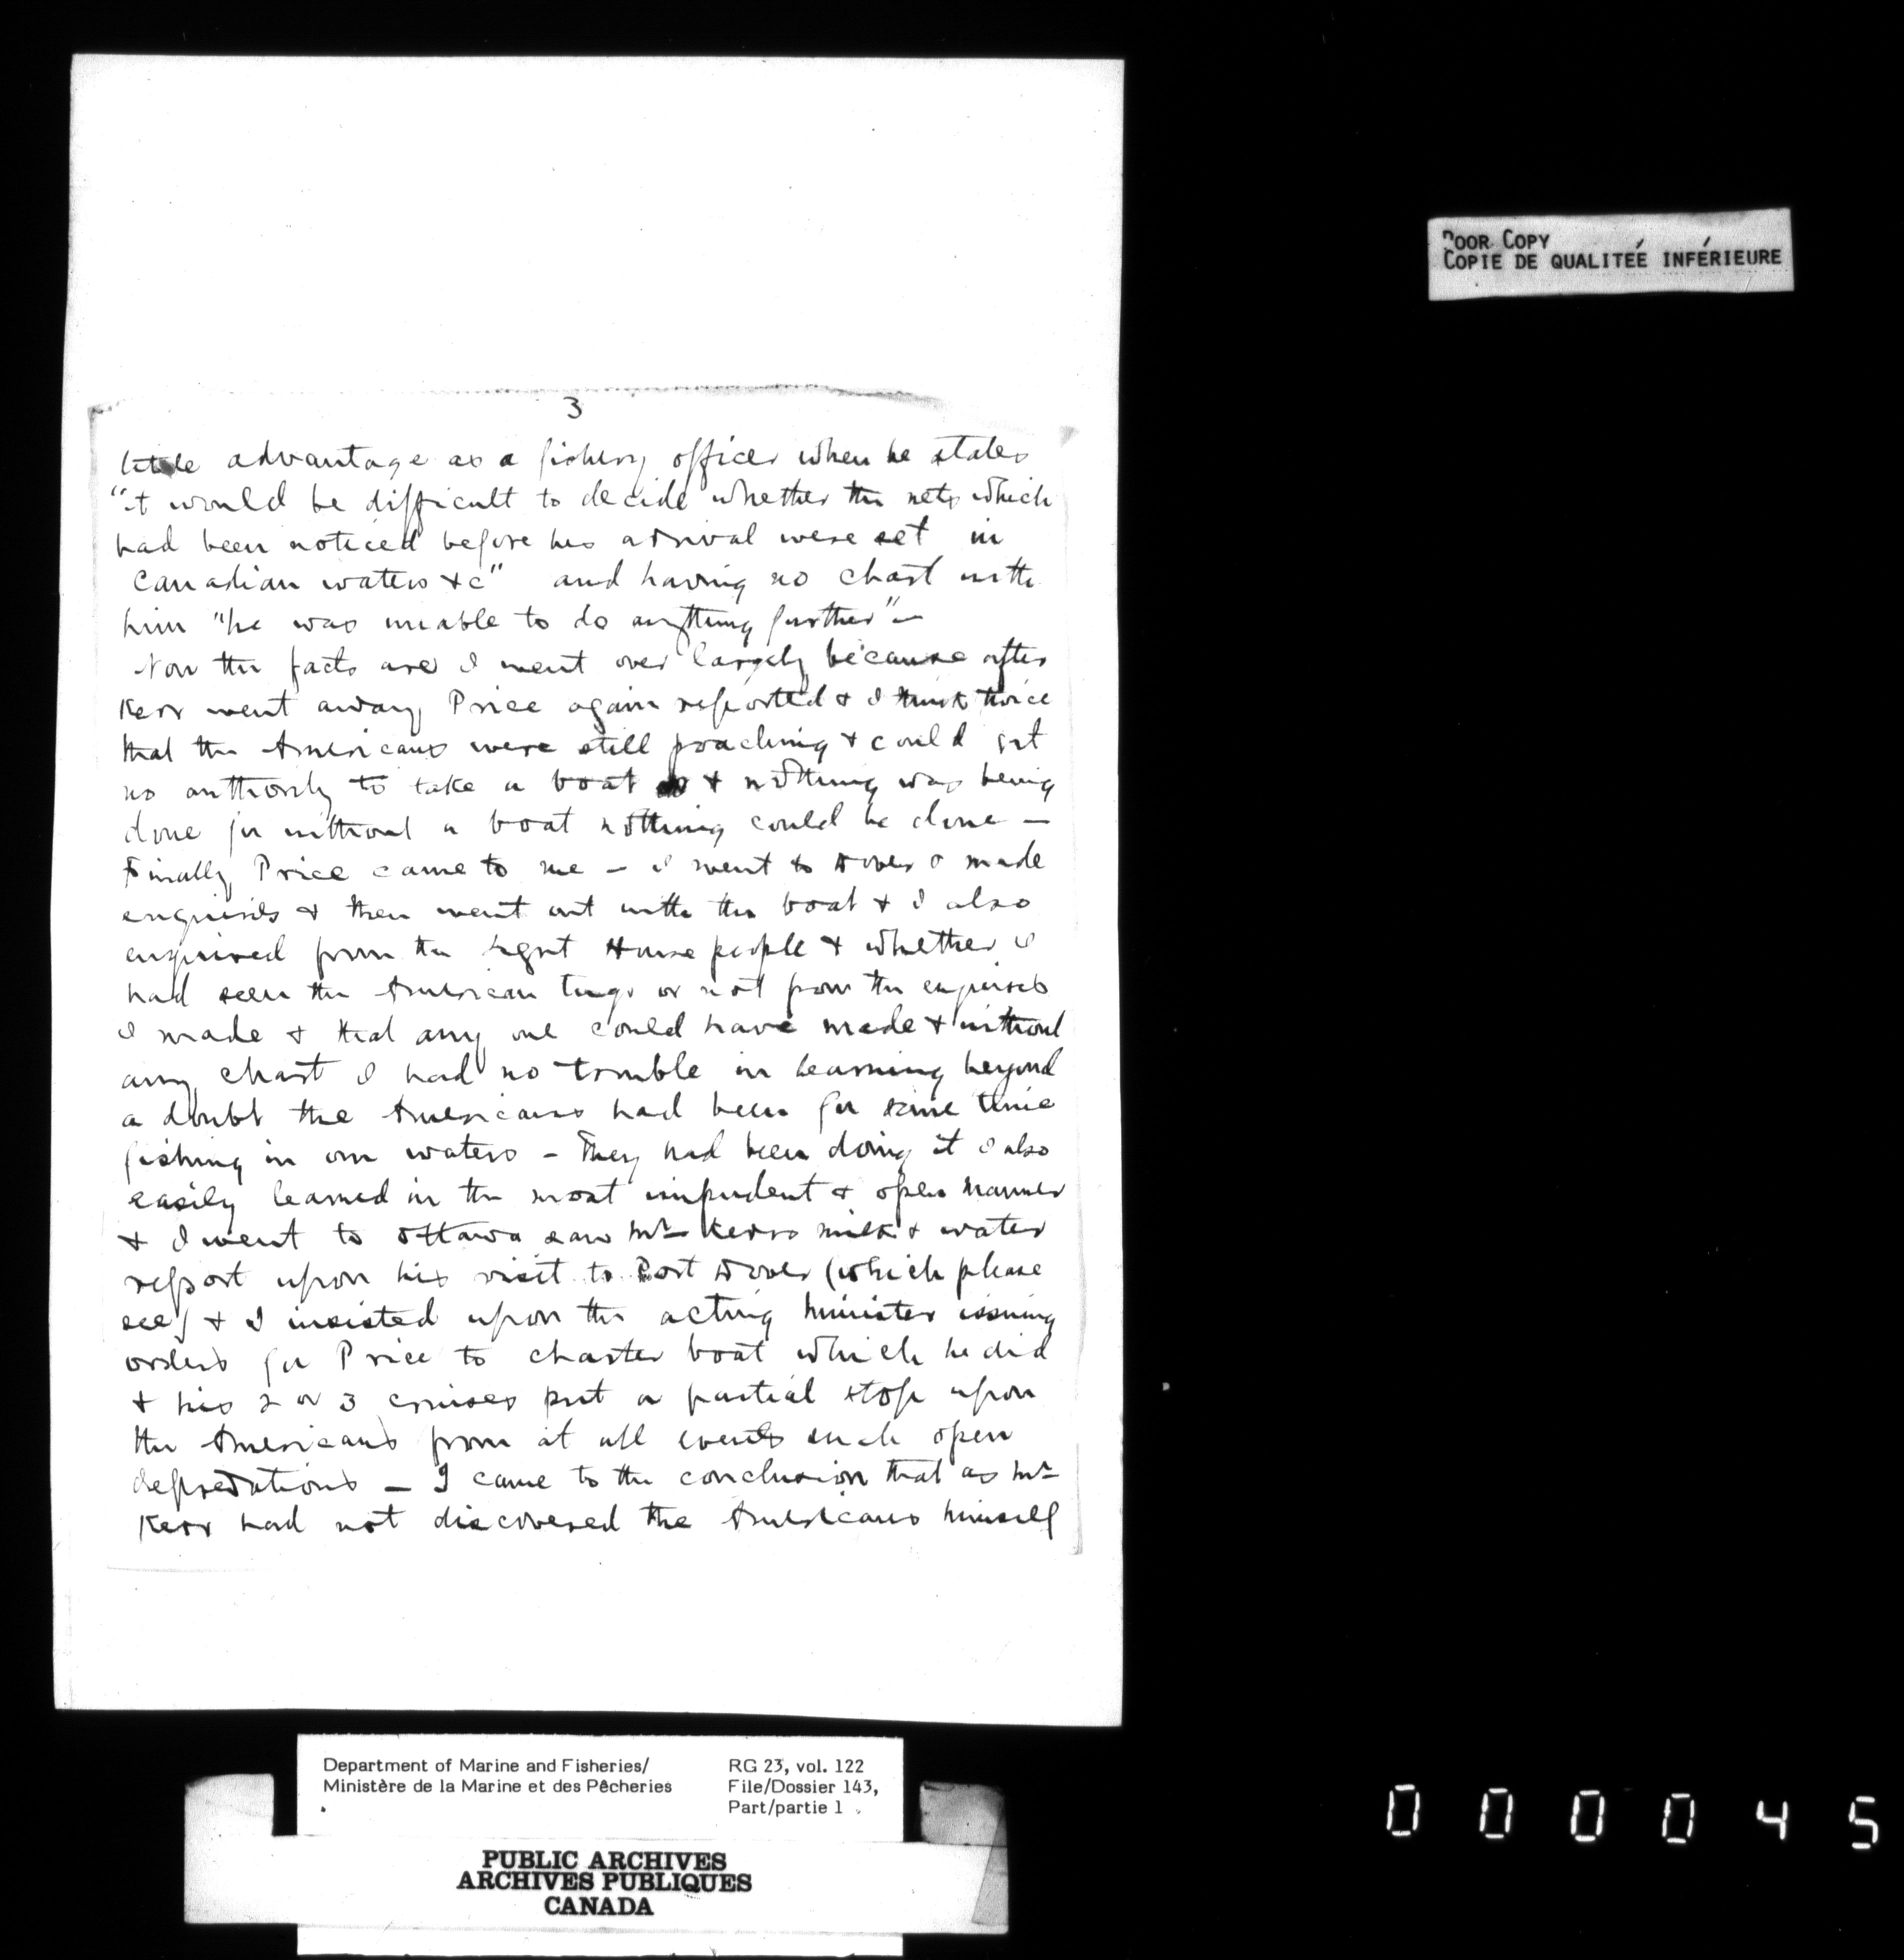 3
little advantage as a fishery officer when he states
"it would be difficult to decide whether the nets which
had been noticed before his arrival were set in
Canadian waters &c" and having no chart with
him "he was unable to do anything further" —
Now the facts are I went over largely because after
Kerr went away, Price again reported & I think twice
that the Americans were still poaching & could get
no authority to take a boat & nothing was being
done for without a boat nothing could be done —
Finally Price came to me — I went to Dover & made
enquiries & then went out with the boat & I also
enquired from the Light House people & whether I
had seen the American tugs or not from the enquiries
I made & that any one could have made & without
any chart I had no trouble in learning beyond
a doubt the Americans had been for some time
fishing in our waters — They had been doing it I also
easily learned in the most impudent & open manner
& I went to Ottawa saw Mr Kerrs milk & water
report upon his visit to Port Dover (which please
see) & I insisted upon the acting Minister issuing
orders for Price to charter boat which he did
& his 2 or 3 cruises put a partial stop upon
the Americans from at all events such open
depredations — I came to the conclusion that as Mr
Kerr had not discovered the Americans himself
POOR COPY
COPIE DE QUALITEÉ INFÉRIEURE
Department of Marine and Fisheries/
Ministère de la Marine et des Pêcheries
RG 23, vol. 122
File/Dossier 143,
Part/partie 1
PUBLIC ARCHIVES
ARCHIVES PUBLIQUES
CANADA
000045